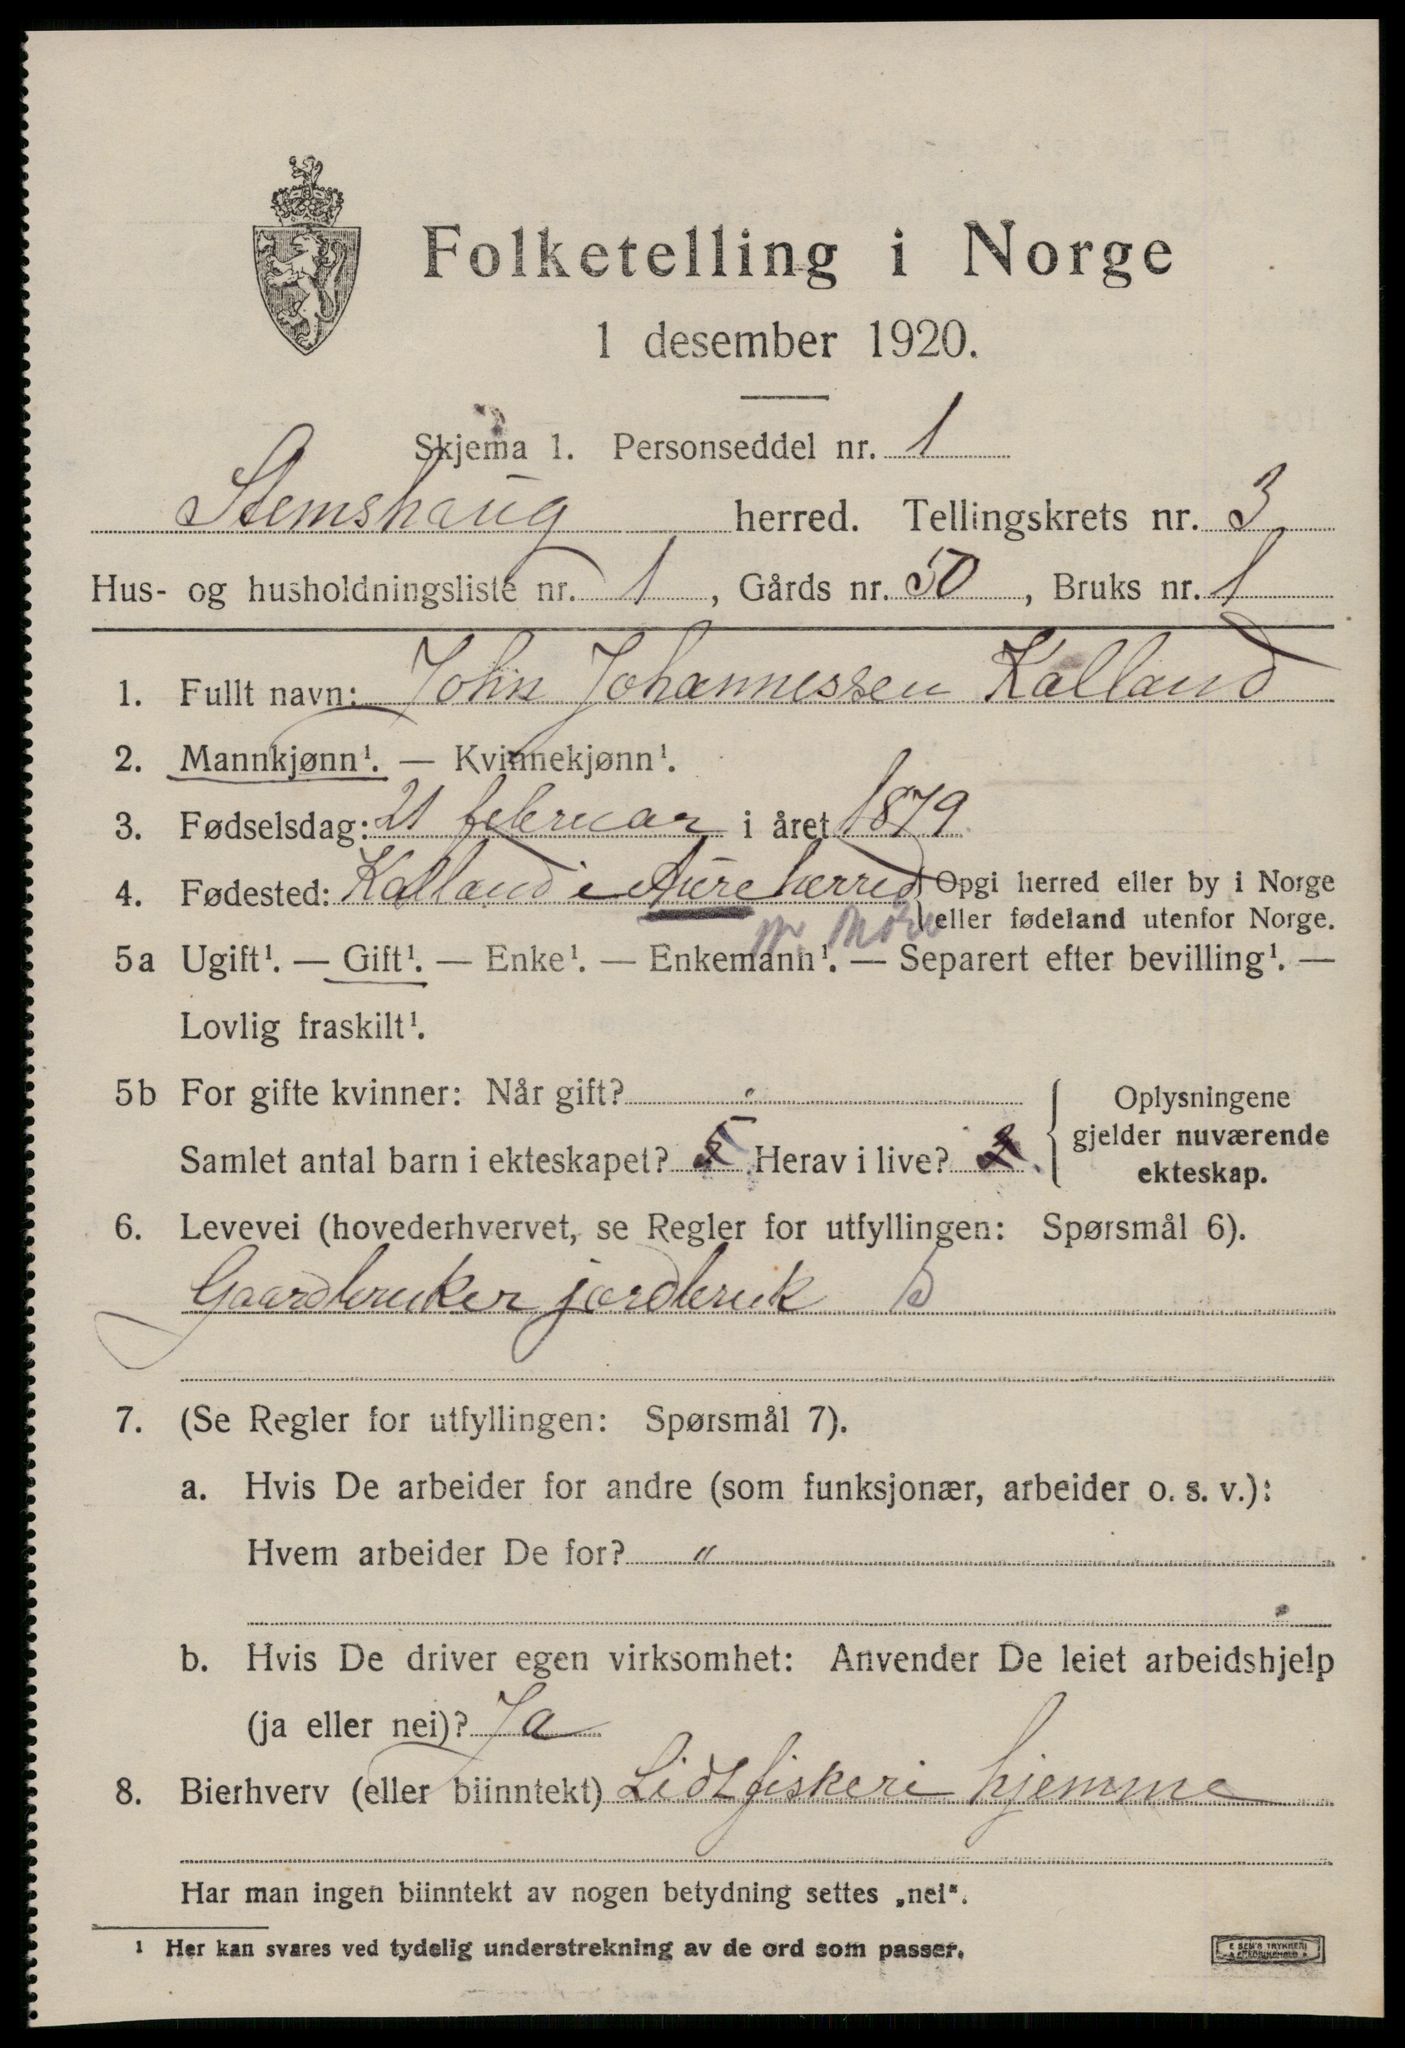 Folketelling i Norge
1 desember 1920.
Skjema 1. Personseddel nr. 1
Stemshaug herred. Tellingskrets nr. 3
Hus- og husholdningsliste nr. 1, Gårds nr. 50, Bruks nr. 1
1. Fullt navn: John Johannessen Kalland
2. Mannkjønn¹. — Kvinnekjønn¹.
3. Fødselsdag: 21 februar i året 1879
4. Fødested: Kalland i Aure herred Opgi herred eller by i Norge
eller fødeland utenfor Norge.
pr. Møre
5a Ugift¹. — Gift¹. — Enke¹. — Enkemann¹. — Separert efter bevilling¹. —
Lovlig fraskilt¹.
5b For gifte kvinner: Når gift? Oplysningene
gjelder nuværende
ekteskap.
Samlet antal barn i ekteskapet? Herav i live?
6. Levevei (hovederhvervet, se Regler for utfyllingen: Spørsmål 6).
Gaardbruker jordbruk
7. (Se Regler for utfyllingen: Spørsmål 7).
a. Hvis De arbeider for andre (som funksjonær, arbeider o. s. v.):
Hvem arbeider De for? "
b. Hvis De driver egen virksomhet: Anvender De leiet arbeidshjelp
(ja eller nei)? Ja
8. Bierhverv (eller biinntekt) Lidt fiskeri hjemme
Har man ingen biinntekt av nogen betydning settes „nei".
¹ Her kan svares ved tydelig understrekning av de ord som passer.